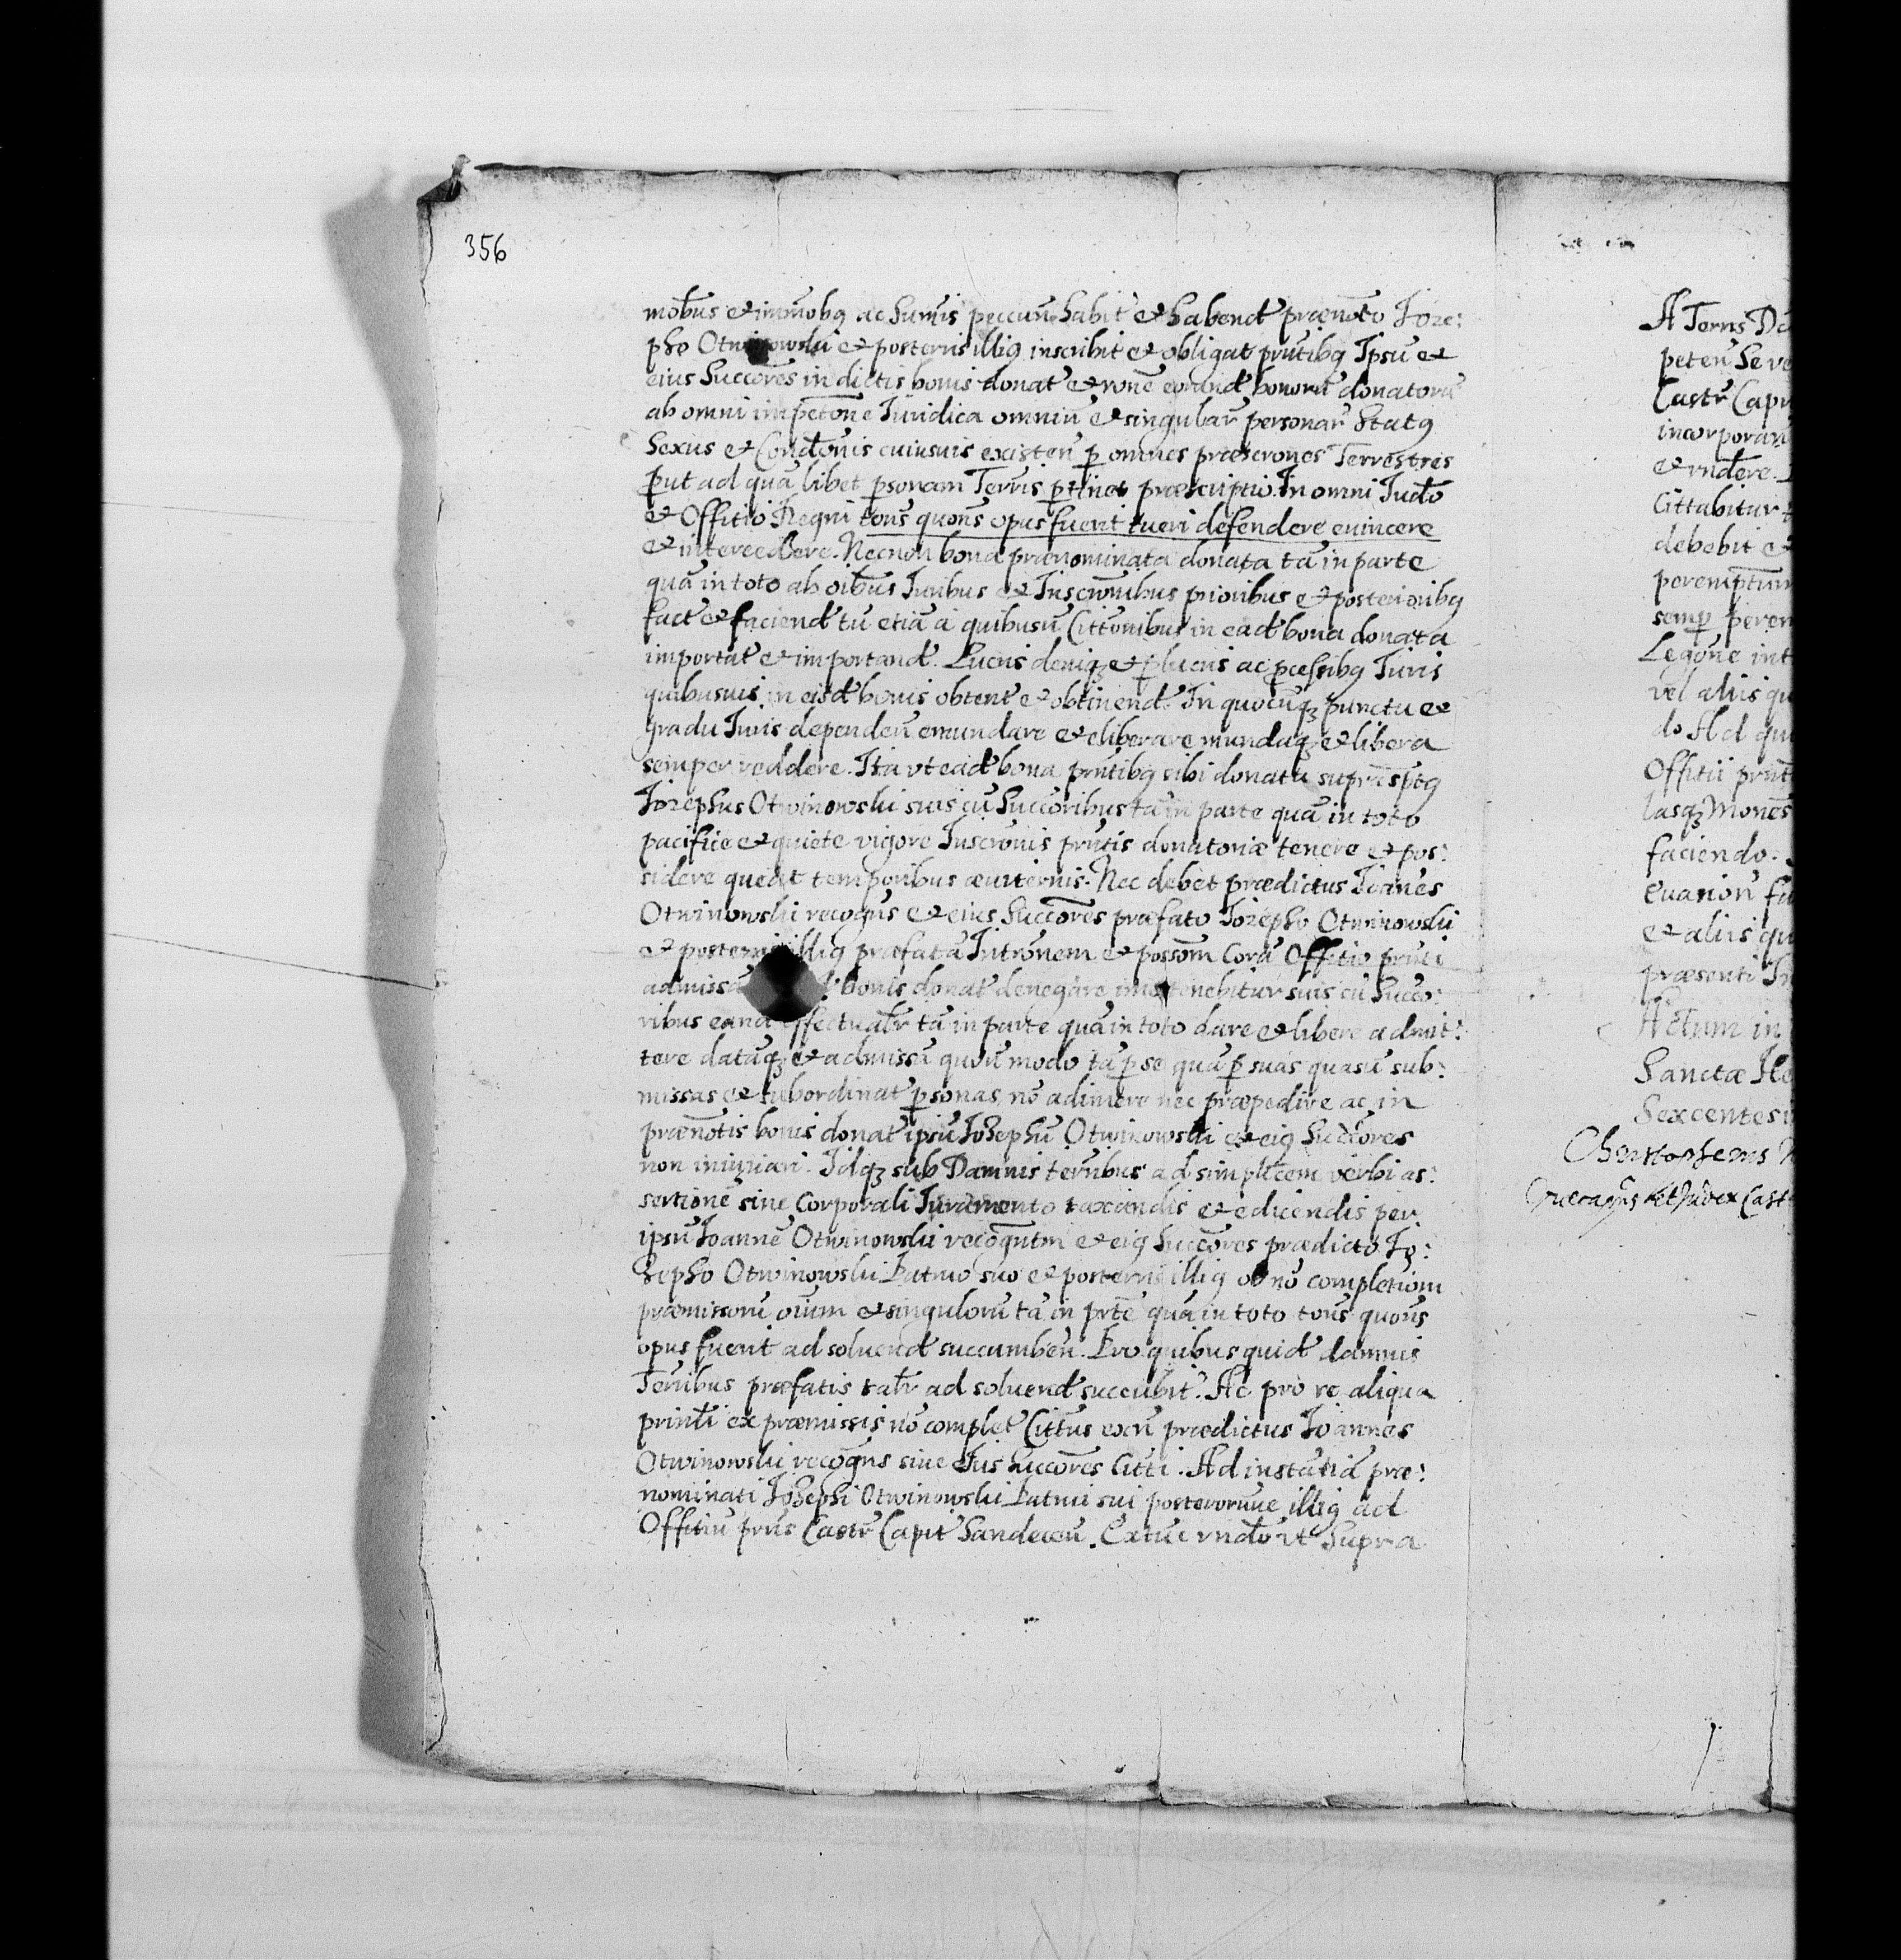 356
mobus et immobq ac Sumis peccun habit et habend prænoto Joze:
pho Otwinowski et posteris illiq inscribit et obligat prntibq Ipsu et
eius Succores in dictis bonis donat et rone eorand bonoru donatoru
ab omni impetone Juridica omniu et singular personar Statq
Sexus et Condonis cuiusuis existen p omnes præscrones Terrestres
put ad qua libet psonam Terris ptinet præscriptio. In omni Judo
et Offitio Regni tons quons opus fuerit tueri defendere euincere
et intercedere. Necnon bona prænominata donata ta in parte
qua in toto ab oibus Juribus et Inscronibus prioribus et posterioribq
fact et faciend tu etia a quibusu Cittonibus in ead bona donata
importat et importand. Lucris deniqz et plucris ac pcessibq Juris
quibusuis in eisd bonis obtent et obtinend. In quocunqz punctu et
gradu Juris dependen emundare et eliberare mundaqz et libera
semper reddere. Ita vt ead bona prntibq sibi donata suprasptq
Jozephus Otwinowski suis cu Succoribus ta in parte qua in toto
pacifice et quiete vigore Inscronis prntis donatoriæ tenere et pos:
sidere queat temporibus æuiternis. Nec debet prædictus Joanes
Otwinowski recogns et eius Succores præfato Jozepho Otwinowski
et posteris illiq præfata Intronem et possom Cora Offitio prnti
admissa bonis donat denegare imo tenebitur suis cu Succo:
ribus eand effectualr ta in parte qua in toto dare et libere admit:
tere dataqz et admissa quouis modo ta p se qua p suas quasu sub:
missas et subordinat psonas no adimere nec præpedire ac in
prænotis bonis donat ipsu Jozephu Otwinowski et eiq Succores
non iniuriari. Idqz sub Damnis terribus ad simplicem verbi as:
sertione sine Corporali Juramento taxandis et edicendis per
ipsu Joanne Otwinowski recogntm et eiq Succores prædicto Jo:
zepho Otwinowski Patruo suo et posteris illiq ob no completiom
præmissoru oium et singuloru ta in prte qua in toto tons quons
opus fuerit ad soluend succumben. Pro quibus quid damnis
Terribus præfatis talr ad soluend succubit. Ac pro re aliqua
prinli ex præmissis no complet Cittus exn prædictus Joannes
Otwinowski recogns siue eius Succores Citti. Ad instatia præ:
nominati Jozephi Otwinowski Patrui sui posterorumue illiq ad
Offitiu prns Castr Capit Sandecen. Extuc vndo vt Supra
A Terris
peten Se
Castr Cap
incorporar
et vndere.
Cittabitur
debebit et
peremptum
semp perem
Legone int
vel aliis qu
do Ad qu
Offitii prnt
lasqz Mones
faciendo.
euasion fu
et aliis qu
præsenti In
Actum in
Sanctæ
Sexcentesi
Christopherus